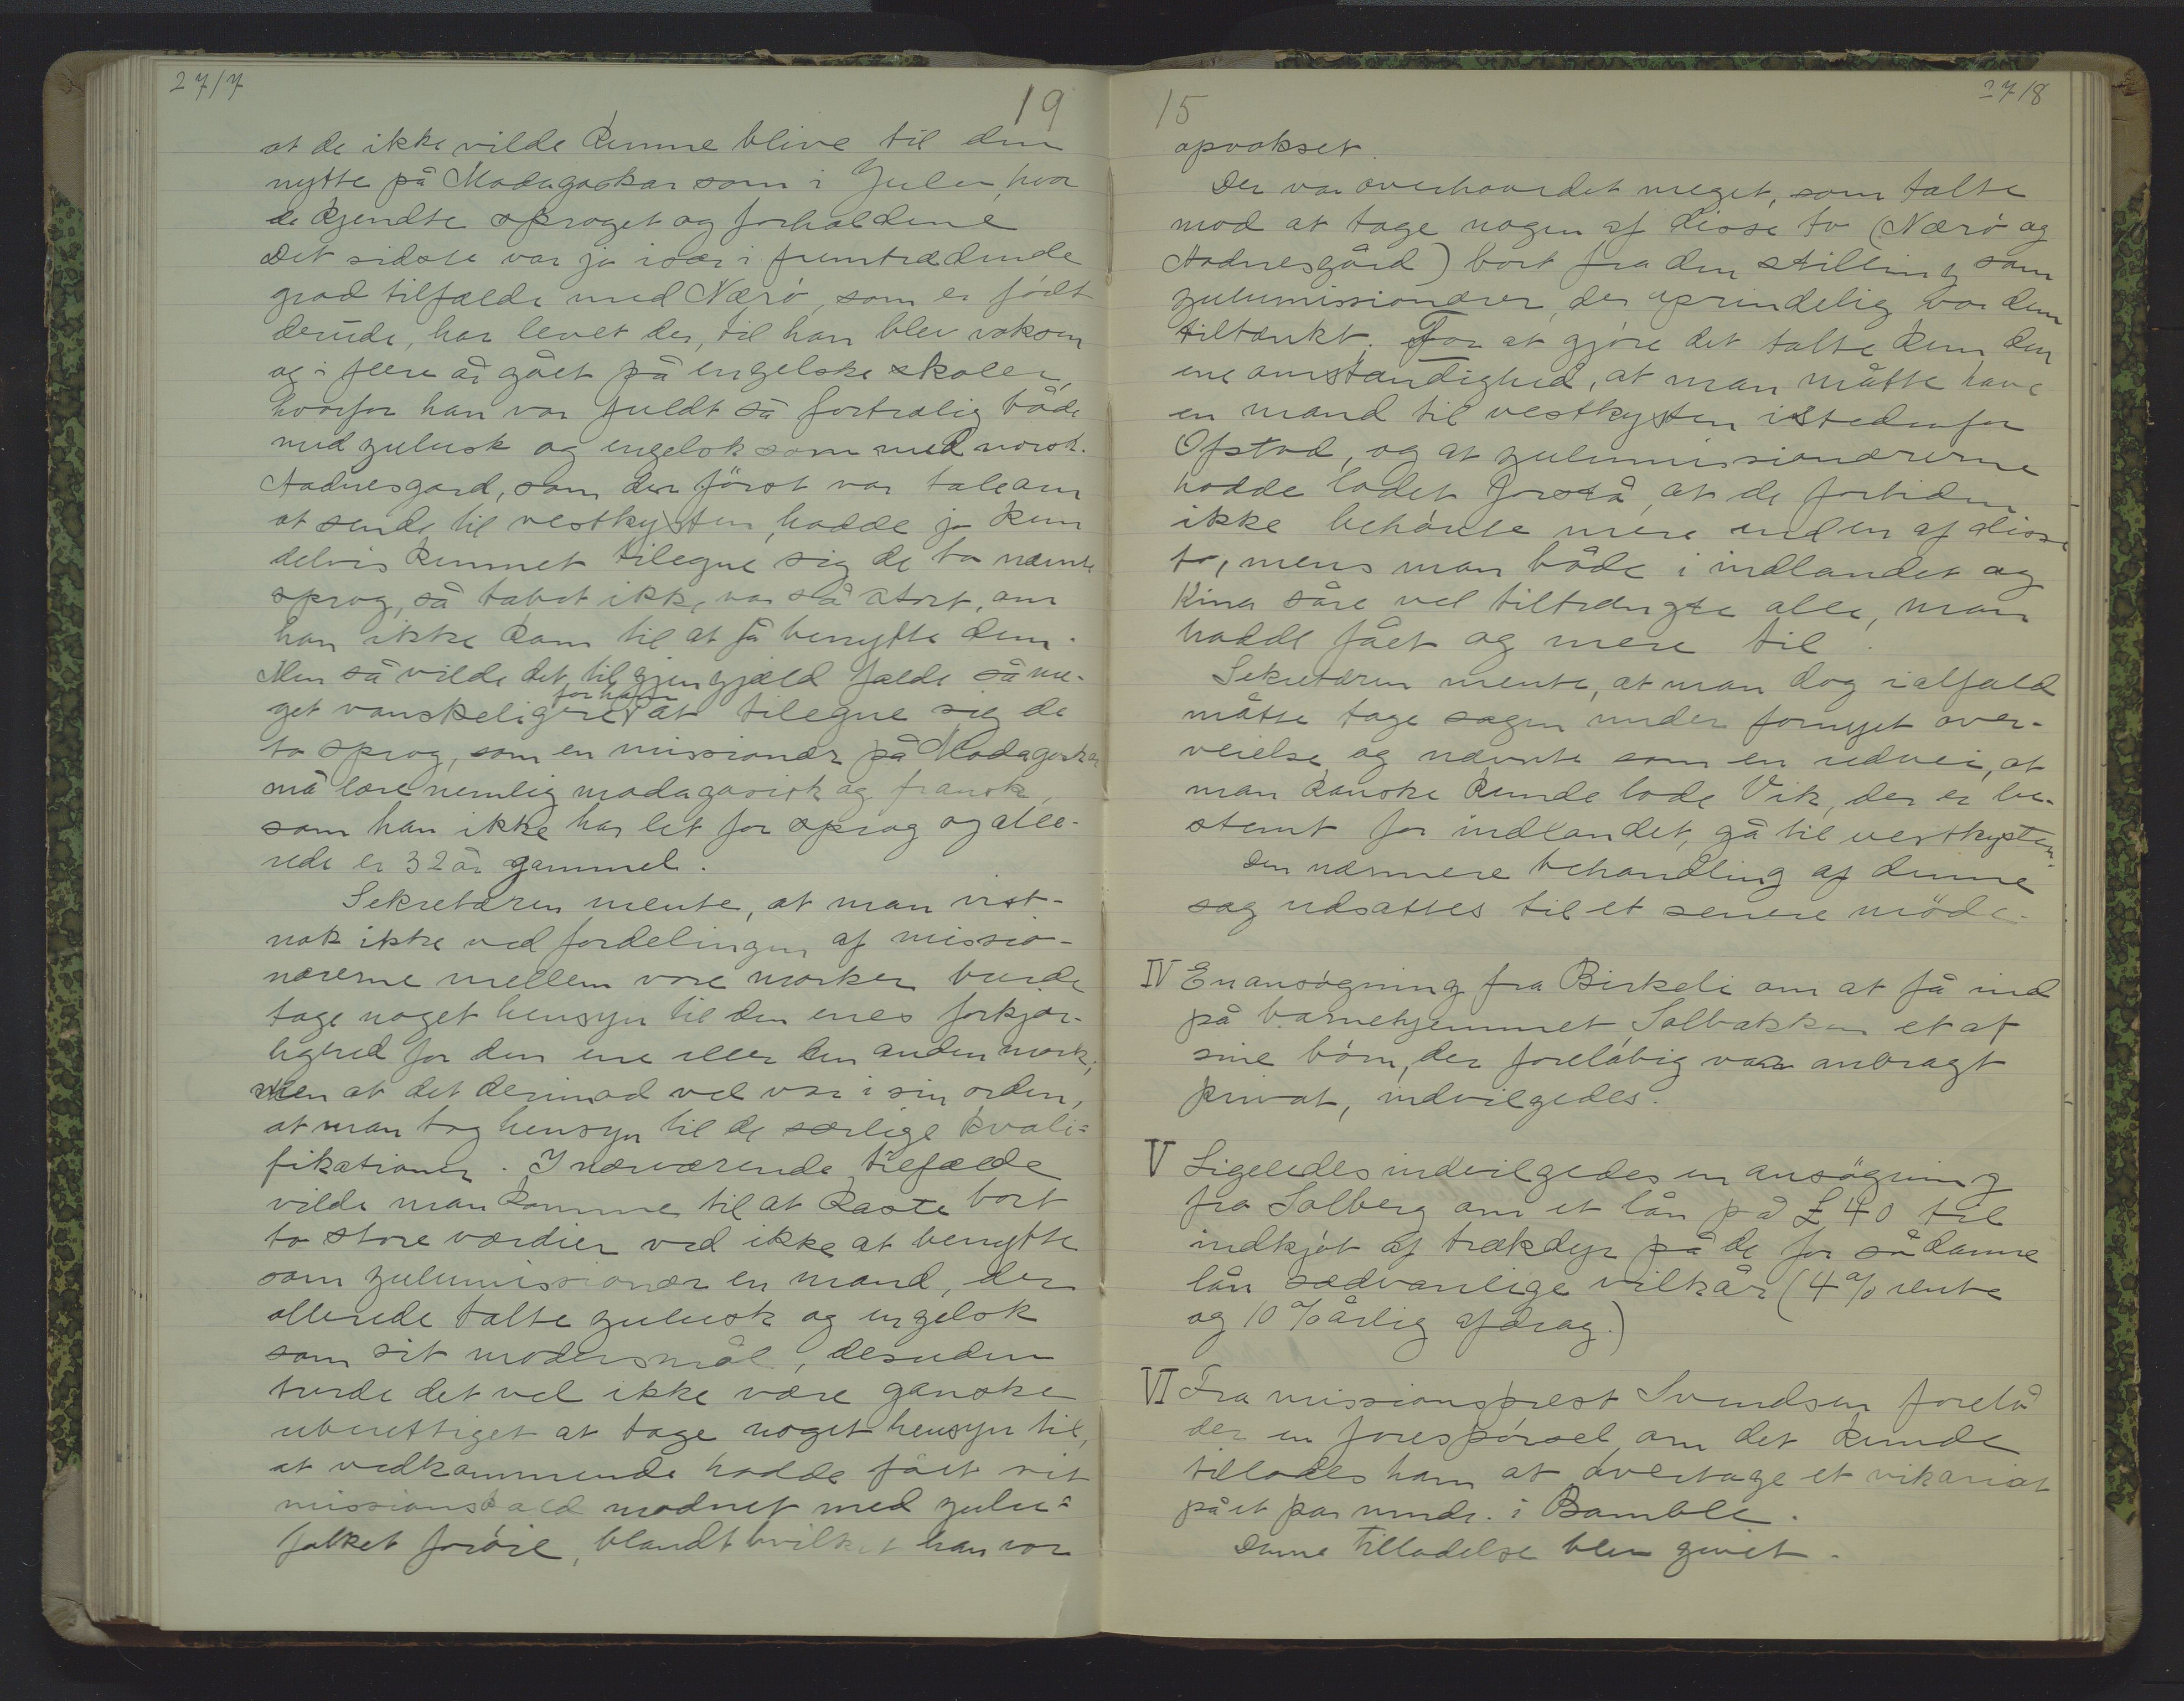 27/7
19
at de ikke vilde kunne blive til den
nytte på Madagaskar som i Zulu, hvor
de kjendte sproget og forholdene
Det sidste var jo især i fremtrædende
grad tilfælde med Nærö, som er födt
derude, har levet der, til han blev voksen
og i flere år gået på engelske skoler,
hvorfor han var fuldt så fortrolig både
med zulusk og engelsk som med norsk.
Aadnesgard, som der först var tale om
at sende til vestkysten, hadde jo kun
delvis kunnet tilegne sig de to nævnte
sprog, så tabet ikke var så stort, om
han ikke kom til at få benytte dem.
Men så vilde det til gjengjæld falde så me-
for ham
get vanskeligere at tilegne sig de
to sprog, som en missionær på Madagaskar
må lære nemlig madagassisk og fransk,
som han ikke har let for sprog og alle-
rede er 32 år gammel.
Sekretæren mente, at man vist-
nok ikke ved fordelingen af missio-
nærerne mellem vore marker burde
tage noget hensyn til den enes forkjær-
lighed for den ene eller den anden mark;
men at det derimod vel var i sin orden,
at man tog hensyn til de særlige kvali=
fikationer. I nærværende tilfælde
vilde man komme til at kaste bort
to store værdier ved ikke at benytte
som zulumissionær en mand, der
allerede talte zulusk og engelsk
som sit modersmål, desuden
turde det vel ikke være ganske
uberettiget at tage noget hensyn til,
at vedkommende hadde fået sit
missionskald modnet med zulu=
folket forøie, blandt hvilket han var
15
27/8
opvokset.
Der var overhoordet meget, som talte
mod at tage nogen af disse to (Nærö og
Aadnesgård) bort fra den stilling som
zulumissionærer, der oprindelig var dem
tiltænkt. For at gjöre det talte kun den
ene omstændighed, at man måtte have
en mand til vestkysten istedenfor
Ofstad, og at zulumissionærerne
hadde ladet forstå, at de fortiden
ikke behövte mere end en af disse
to, mens man både i indlandet og
Kina såre vel tiltrængte alle, man
hadde fået og mere til.
Sekretæren mente, at man dog ialfald
måtte tage sagen under fornyet over-
veielse og nævnte som en udvei, at
man kanske kunde lade Vik, der er be-
stemt for indlandet, gå til vestkysten.
Den nærmere behandling af denne
sag udsattes til et senere möde.
IV En ansögning fra Birkeli om at få ind
på barnehjemmet Solbakken et af
sine börn, der forelöbig var anbragt
privat, indvilgedes.
V Ligeledes indvilgedes en ansögning
fra Solberg om et lån på £ 40 til
indkjöb af trækdyr på de for sådanne
lån sædvanlige vilkår (4 % rente
og 10 % årlig afdrag.)
VI Fra missionsprest Svendsen forelå
der en forespörsel, om det kunde
tillades ham at overtage et vikariat
på et par mndr. i Bamble.
Denne tilladelse blev givet.